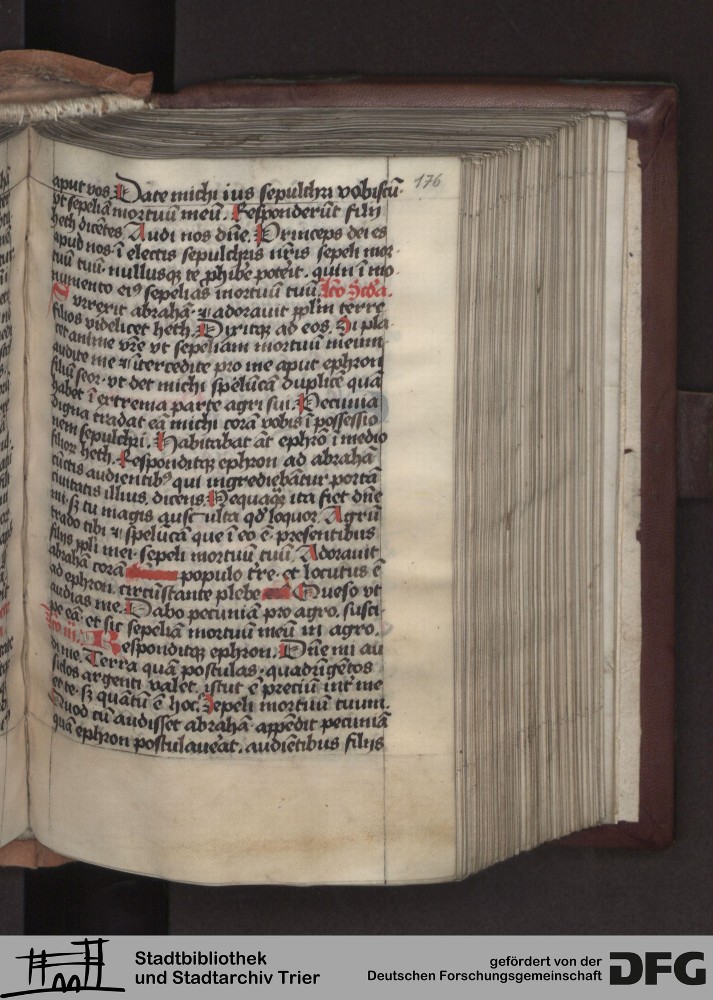 176
aput vos. Date michi ius sepulchri vobiscū.
vt sepeliā mortuū meū. Responderūt filij
heth dicētes Audi nos dn̄e. Princeps dei es
apud nos. ī electis sepulchris nr̄is sepeli mor
tuū tuū. nullusqꝫ te ꝓhibe poteit. quin ī mo
numento eiꝰ sepelias mortuū tuū. Lc̄o
Surrexit abrahā. ⁊ adorauit pplm terre
filios videlicet heth. Dixitqꝫ ad eos. Si pla
cet anime vr̄e vt sepeliam mortuū meum
audite me ⁊ ītercedite pro me aput ephron
filiū seor. vt det michi spēlūcā duplicē quā
habet ī extrema parte agri sui. Pecunia
digna tradat eā michi corā vobis ī possessio
nem sepulchri. Habitabat āt ephrō ī medio
filior heth. Responditqꝫ ephron ad abrahā
cūctis audientibꝰ qui ingrediebātur portā
ciuitatis illius. dicens. Nequaqꝫ ita fiet dn̄e
mi. sꝫ tu magis ausculta qd̓ loquor. Agrū
trado tibi ⁊ spelūcā que ī eo ē. presentibus
filijs ppli mei. sepeli mortuū tuū. Adorauit
abrahā corā populo tr̄e. et locutus ē
ad ephron. circūstante plebe Queso vt
audias me. Dabo pecuniā pro agro. susci
pe eā. et sic sepeliā mortuū meū in agro.
Lc̄o iii. Responditqꝫ ephron. Dn̄e mi au
di me. Terra quā postulas. quadrīgētos
siclos argenti valet. istut ē preciū int̄ me
et te. sꝫ quātū ē hoc. Sepeli mortuū tuum.
Quod cū audisset abrahā. appēdit pecuniā
quā ephron postulaue̓at. audiētibus filijs
Stadtbibliothek
und Stadtarchiv Trier
gefördert von der
Deutschen Forschungsgemeinschaft
DFG